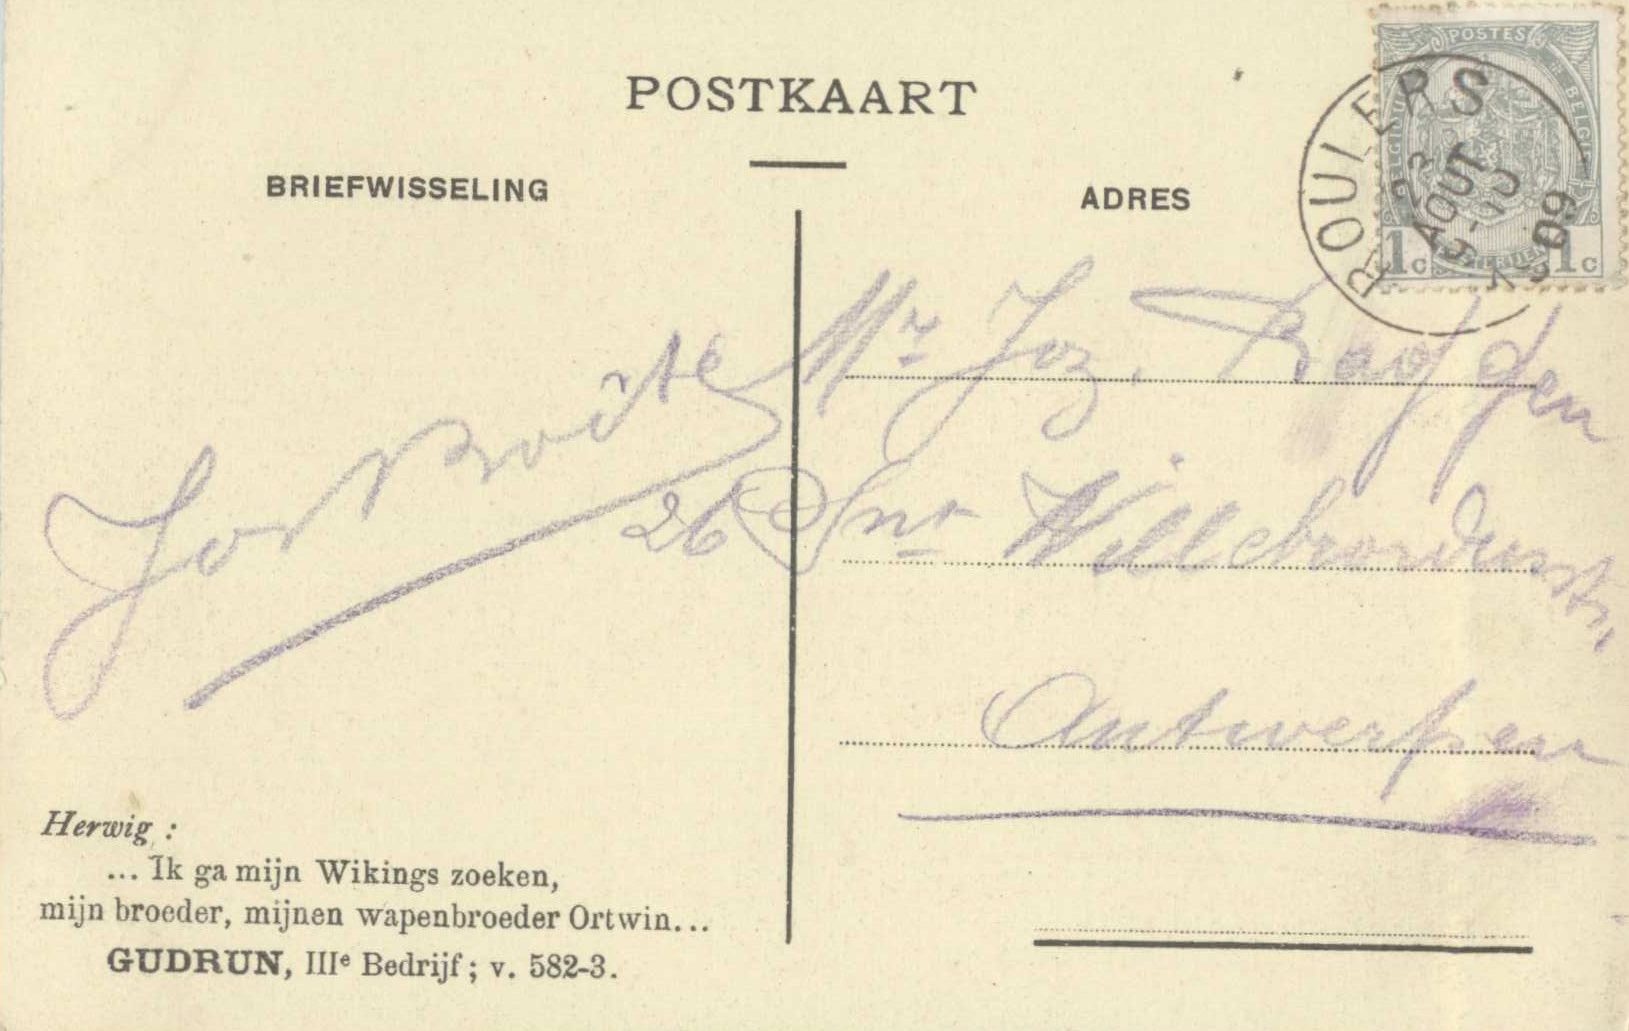 POSTKAART
BRIEFWISSELING
ADRES
POSTES
BELGIQUE
1c 1c
ROULERS
23 AOUT
09
Mr Joz.
26 Snt Willebrordusstr
Antwerpen
Jos
Herwig :
... Ik ga mijn Wikings zoeken,
mijn broeder, mijnen wapenbroeder Ortwin...
GUDRUN, IIIe Bedrijf ; v. 582-3.